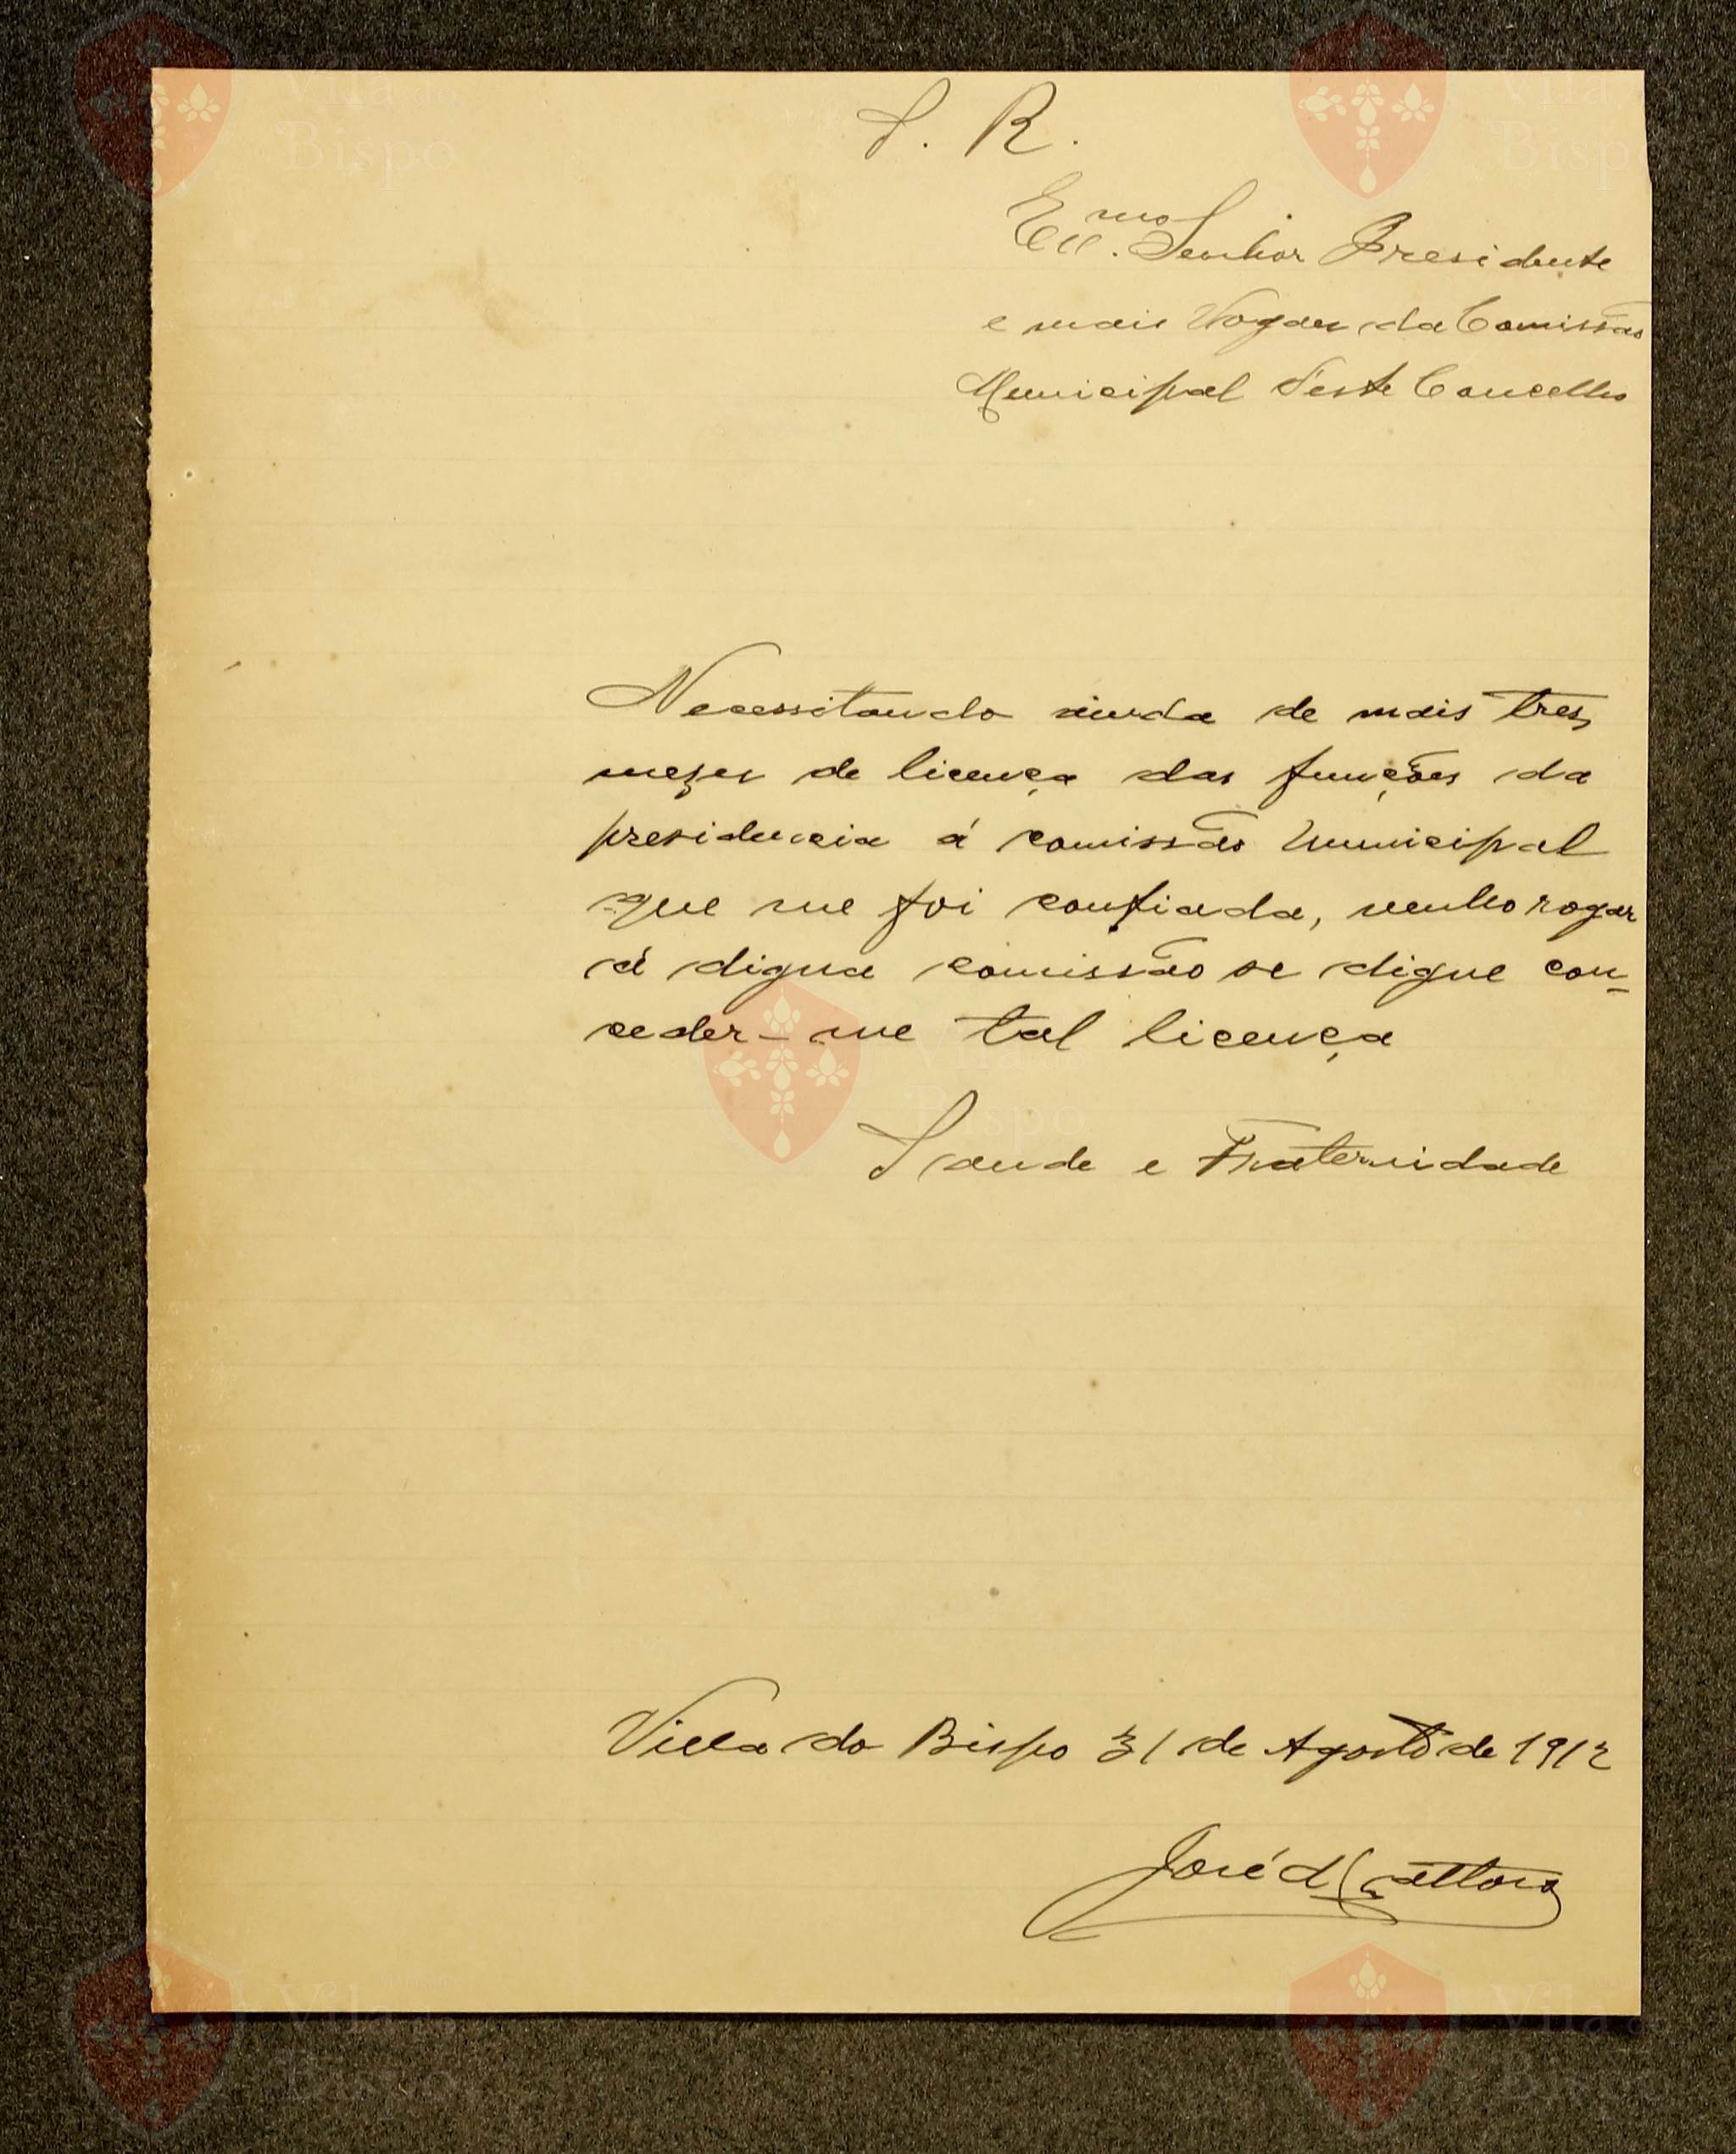 S. R.
Exmo. Senhor Presidente
e mais Vogaes da Comissão
Municipal d'este Concelho
Necessitando ainda de mais tres
mezes de licença das funções da
presidencia á comissão Municipal
que me foi confiada, venho rogar
á digna comissão se digne con-
ceder-me tal licença
Saude e Fraternidade
Villa do Bispo 31 de Agosto de 1912
José d'
Vila do
Bispo